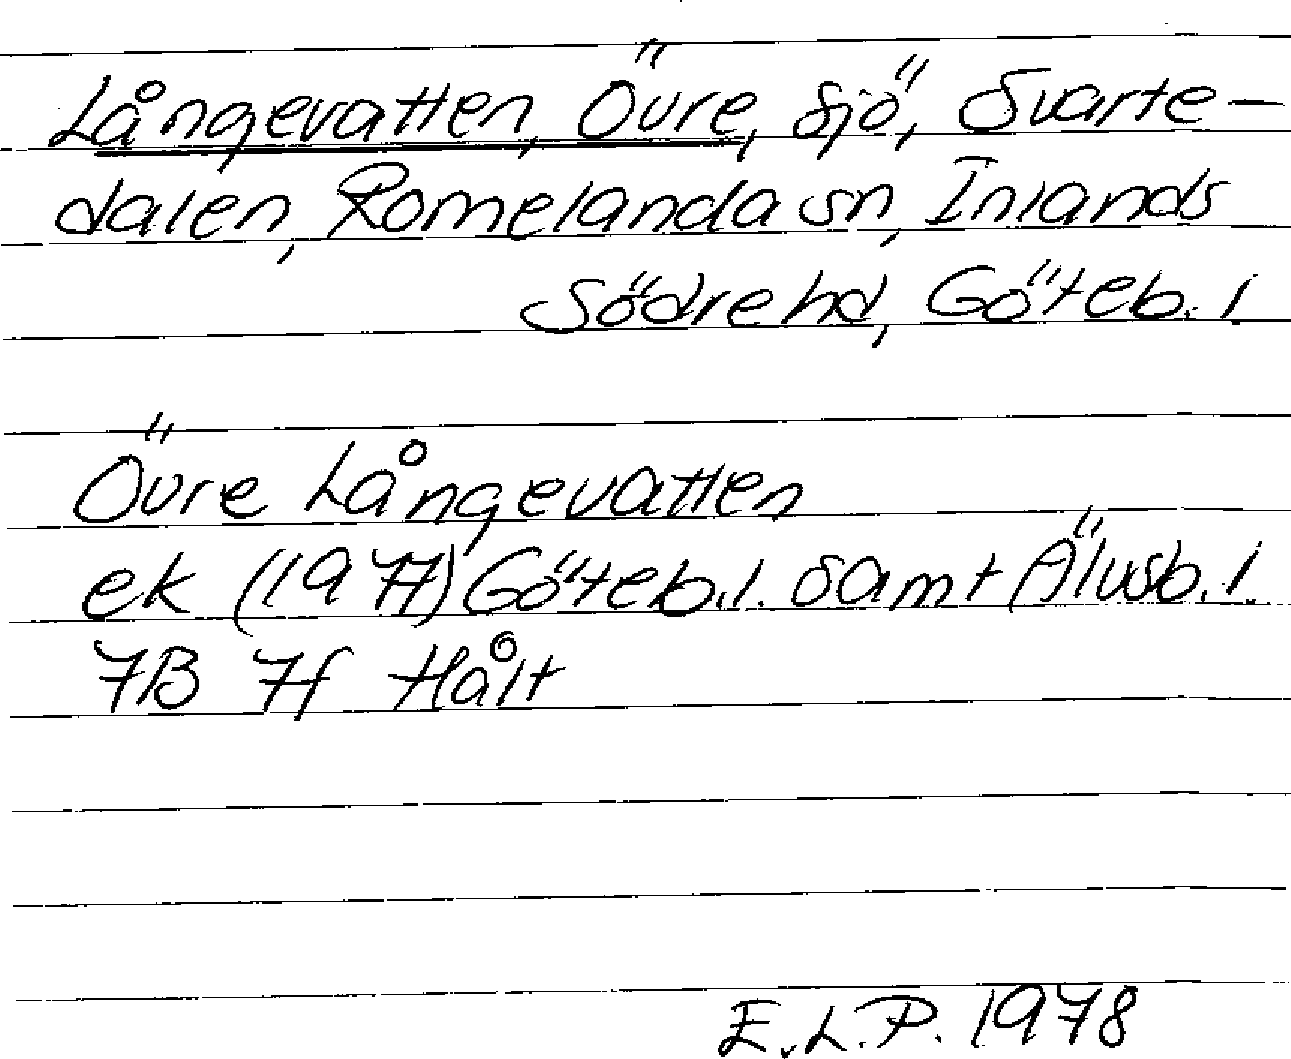 Långevatten, Övre, sjö, Svarte-
dalen, Romelanda sn, Inlands
Södre hd, Göteb. l
Övre Långevatten
ek (1977) Göteb.l. samt Älvsb.l.
7B 7f Hålt
E.L.P. 1978